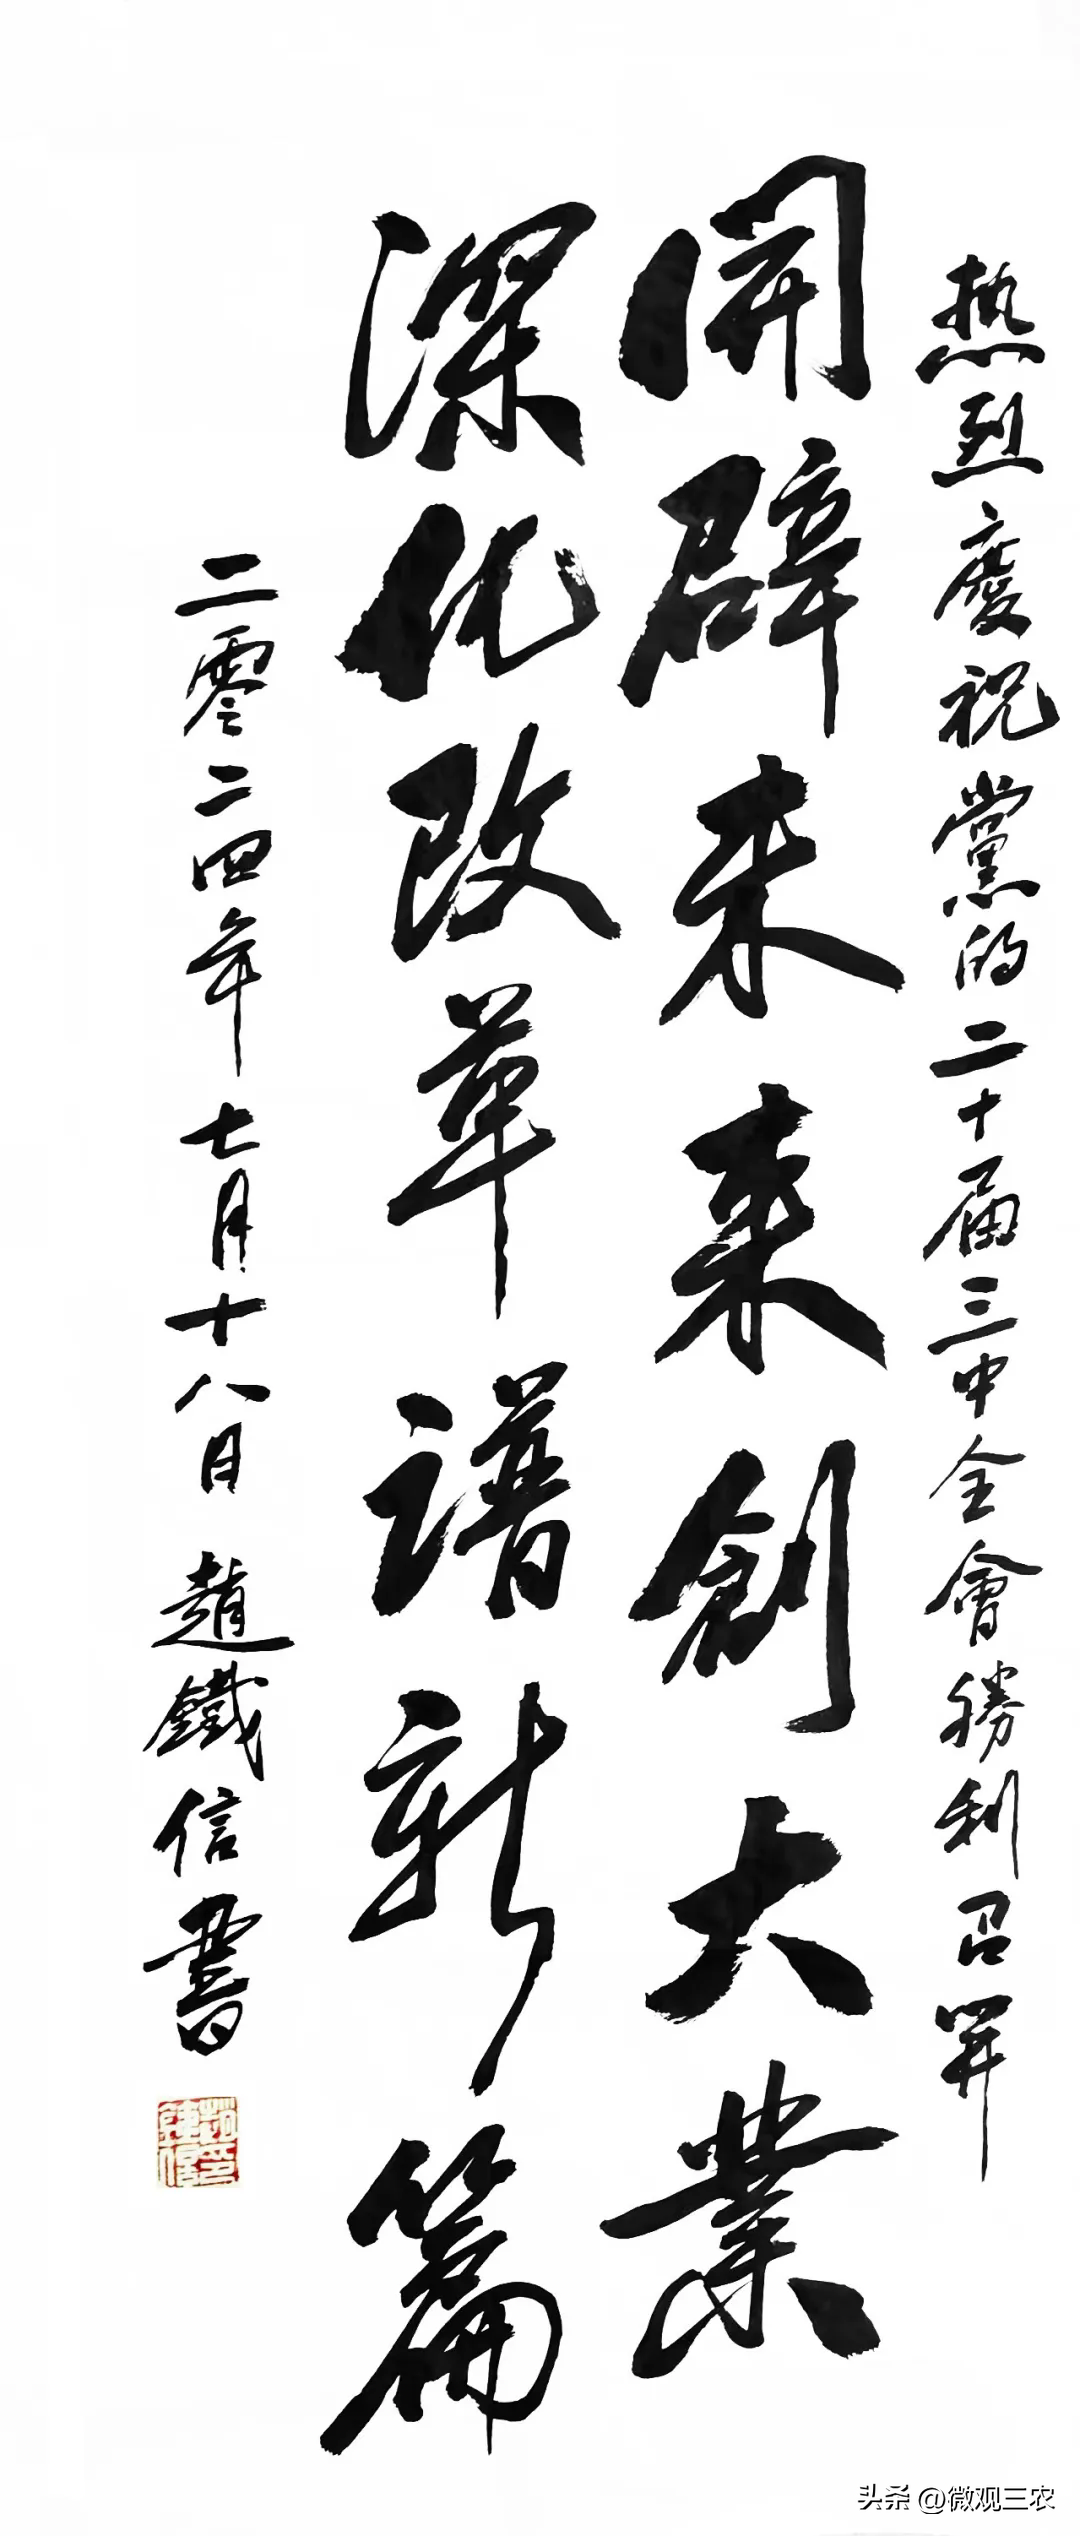 热烈慶祝黨的二十届三中全會勝利召開
開辟未来創大業
深化改革譜新篇
二零二四年七月十八日 趙鐵信書
头条 @微观三农